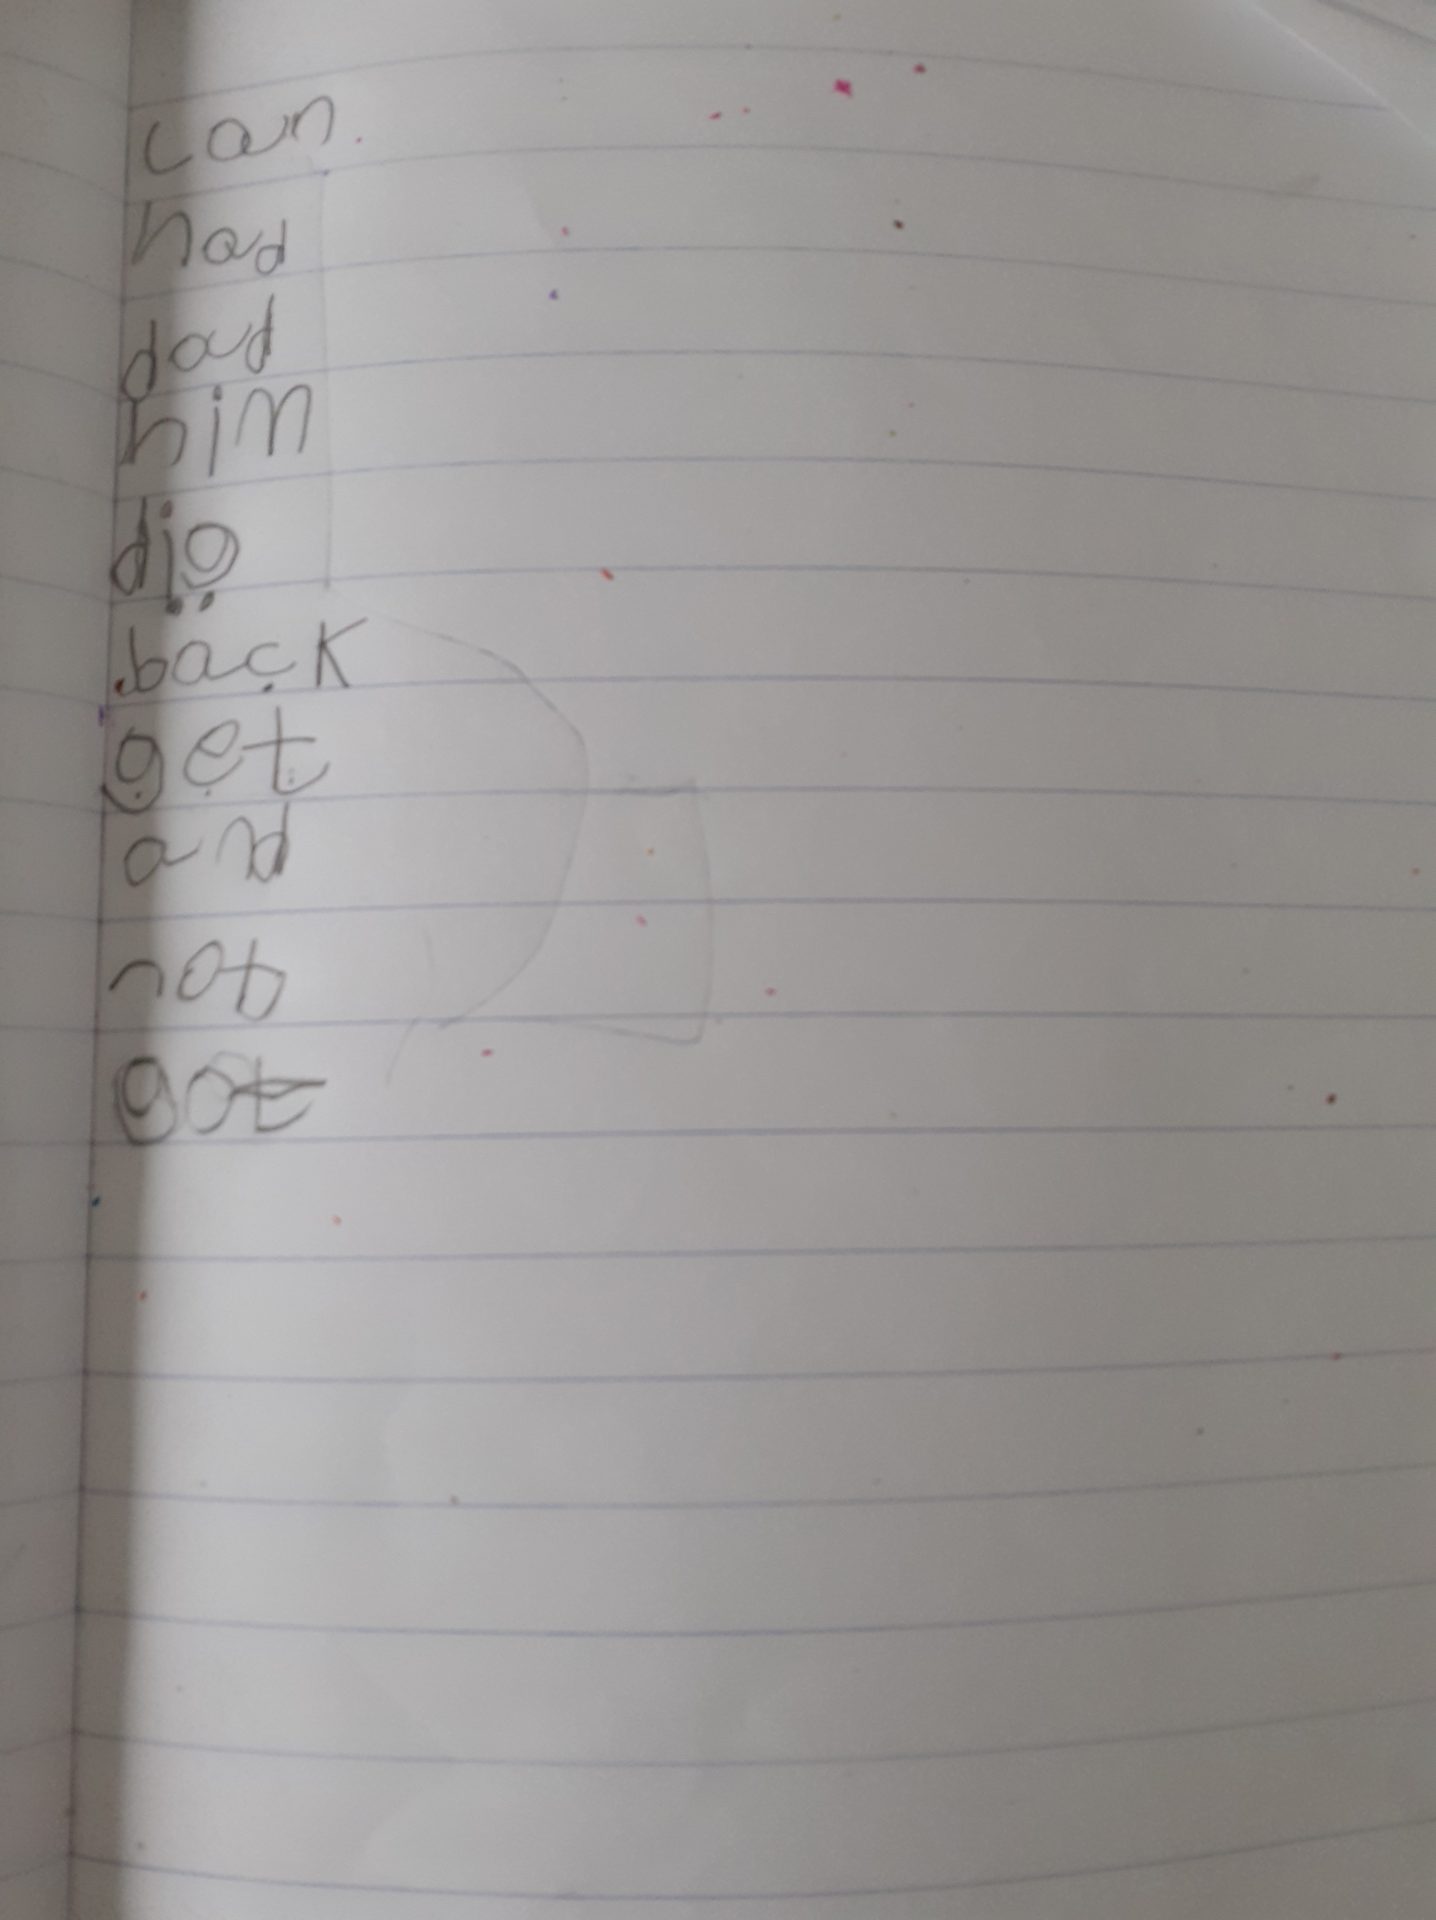 can.
had
dad
him
dig
back
get
and
not
got